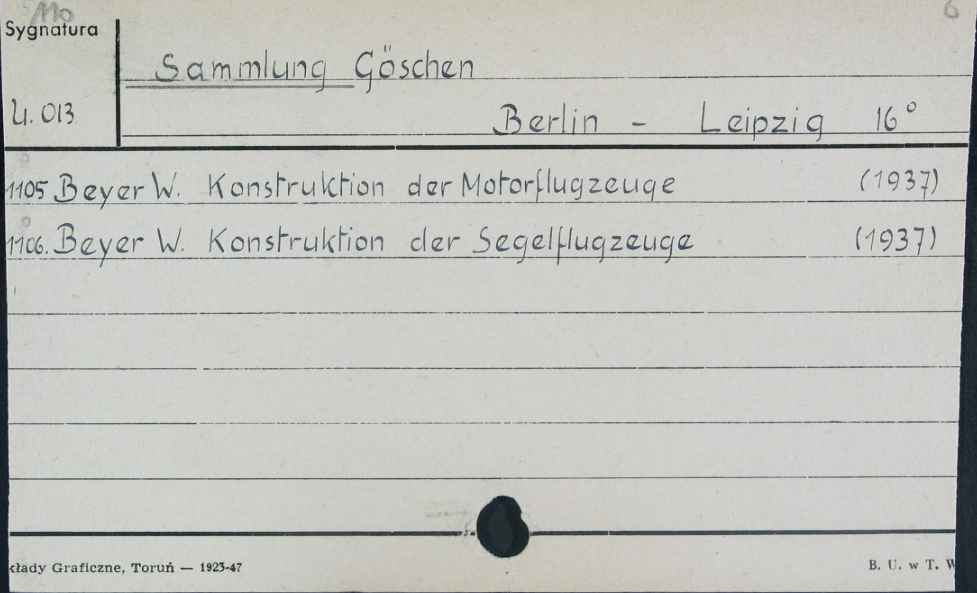 110
6
Sygnatura
Sammlung Göschen
U. 013
Berlin - Leipzig 16°
1105 Beyer W. Konstruktion der Motorflugzeuge (1937)
1106. Beyer W. Konstruktion der Segelflugzeuge (1937)
kłady Graficzne, Toruń — 1923-47
B. U. w T. W